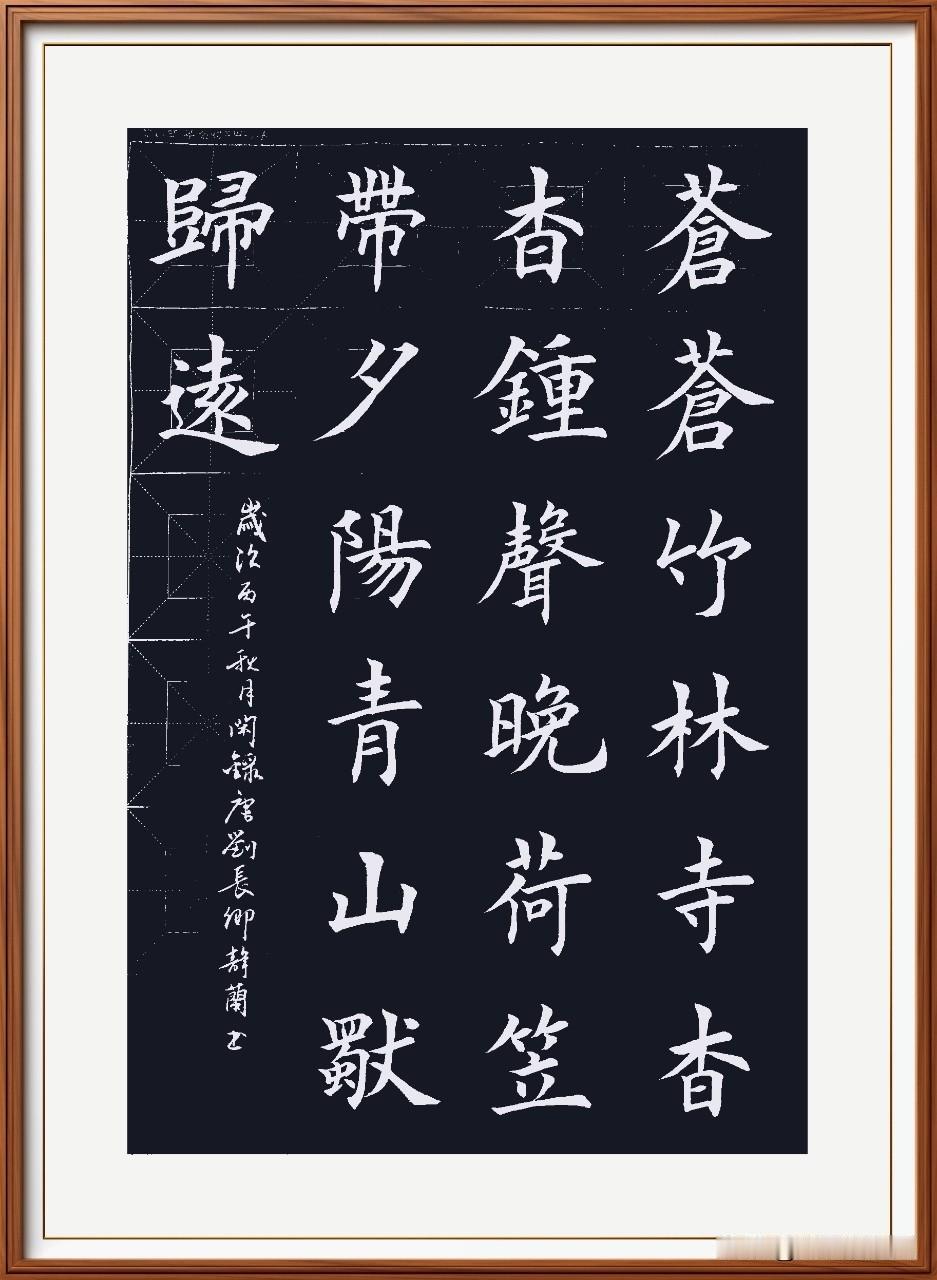 蒼蒼竹林寺杳
杳鍾聲晚荷笠
帶夕陽青山獨
歸遠
歲次丙午秋月閑錄唐劉長卿靜蘭书